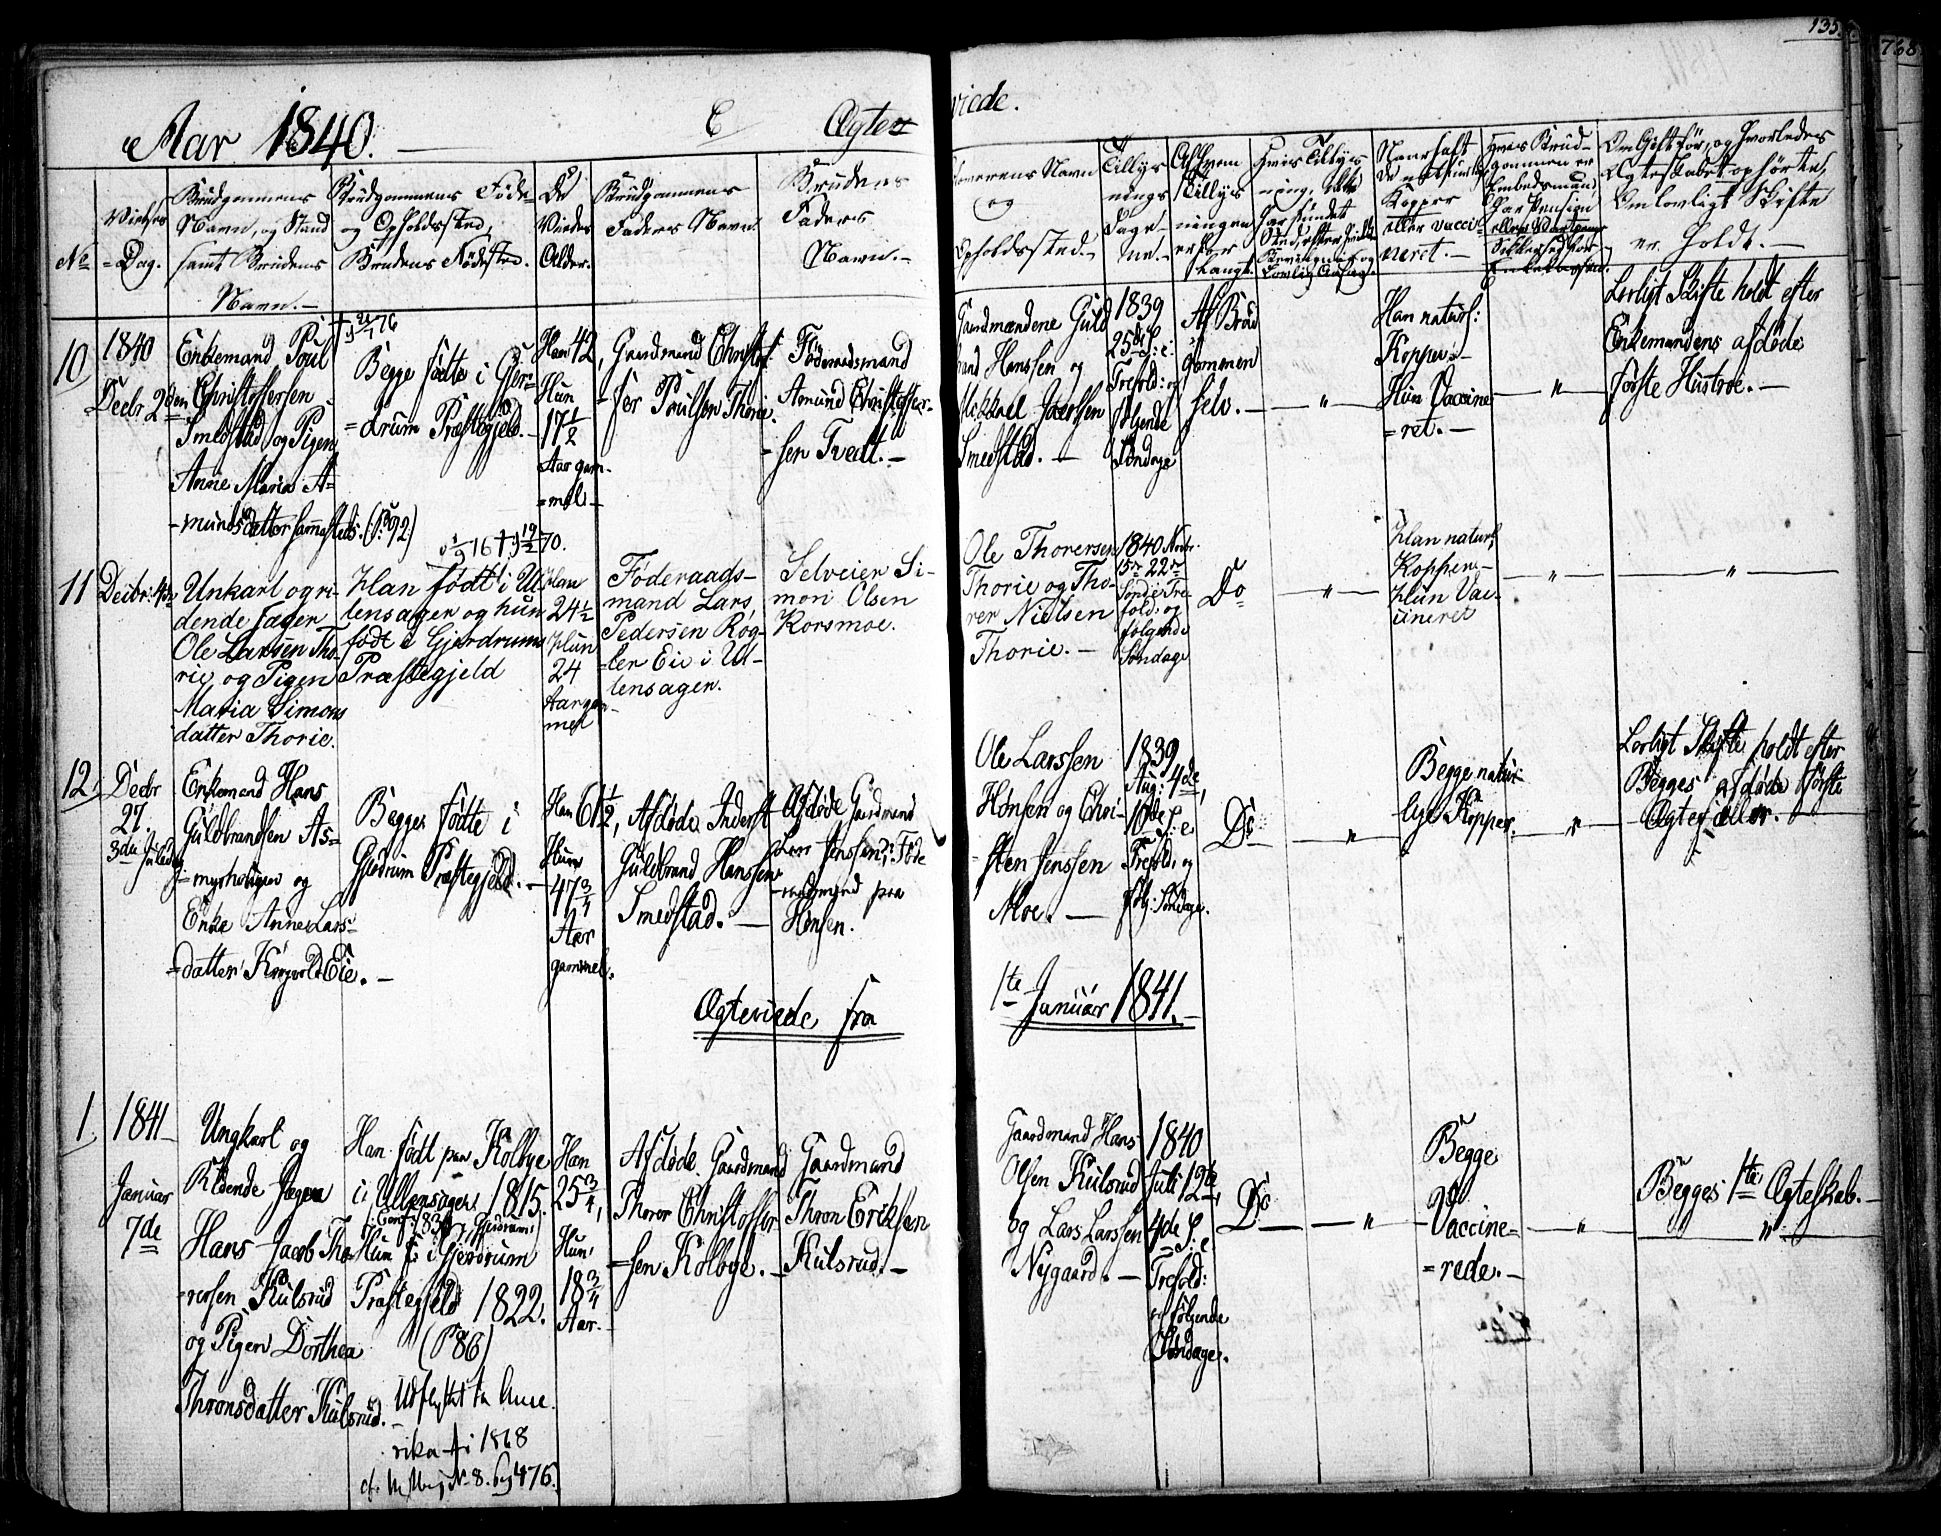 135.
768
Aar 1840. E Ægteviede.
No
Vielses
=Dag.
Brudgommens
Navn, og Stand
samt Brudens
Navn.—
Brudgommens Føde-
og Opholdssted,
Brudens Fødested.
De
Viedes
Alder.
Brudgommens
Faders Navn.
Brudens
Faders
Navn.—
Navn
og
Opholdssted.—
Tillys
nings
Dage
ne.—
Af Hvem
Tillys
ningen
er for
langt.
Naar havt
Kopper
eller vacci-
neret.—
Om Gift før, og hvorledes
Ægteskabet ophørte,
Om lovligt Skifte
er holdt.—
10
1840
Decbr 26den
Enkemand Poul
Christoffersen
Smedstad og Pigen
Anne Maria A=
-mundsdatter sammesteds. (P: 92)
Begge fødte i Gjer=
=drum Præstegjeld.—
Han 42,
Hun
17½
Aar gam-
=mel.—
Gaardmand Christof-
fer Poulsen Thorie.
Føderaadsmand
Amund Christoffer-
sen Tvedt.—
Gaardmændene Guld
brand Hanssen og
Mikkael Jacobsen
Smedstad.—
1839
25de S: e:
Trefold: og
følgende
Søndage
Af Brud
gommen
selv.—
—„—
Han naturl:
Kopper.—
Hun Vaccine
=ret.—
—„—
Lovligt Skifte holdt efter
Enkemandens afdøde
første Hustroe.—
11
Decbr: 4de
Unkarl og ri-
dende Jæger
Ole Larsen Tho-
rie og Pigen
Maria Simons
datter Thorie.
Han født i Ul-
lensager og hun
født i Gjerdrums
Præstegjeld
Han
24½
Hun
24
Aar gam-
mel
Føderaads-
mand Lars
Pedersen Røg-
len Eie i Ul-
lensager.
Selveier Si-
mon Olsen
Korsmoe.
Ole Thoresen
Thorie og Tho-
rer Nielsen
Thorie.—
1840 Novbr.
15de 22de
Sønd e Tre
fold: og
følgende
Søndage
Do
—„—
Han naturl.
Kopper.—
Hun Vac-
cineret
—„—
—„—
12
Decbr
27.
3die Juledag
Enkemand Hans
Guldbrandsen As-
=myrhougen og
Enke Anne Lars-
=datter Kongvold Eie.—
Begge fødte i
Gjerdrum Præstegjeld.—
Han 61½,
Hun
47¾
Aar
gammel.
Afdøde Inderst
Guldbrand Hanssen
Smedstad.—
Afdøde Gaardmand
Lars Jenssen, Føde
=raadsmand paa
Hønsen.
Ole Larssen
Hønsen og Chri-
=sten Jenssen
Moe.—
1839
Aug: 4de,
10de S: e
Trefold: og
følg: Søndage.
Do
—„—
Begge natur-
lige Kopper.
—„—
Lovligt Skifte holdt efter
Begges afdøde første
Ægtefæller.—
Ægteviede fra 1te Januar 1841.—
1
1841
Januar
7de
Ungkarl og
Ridende Jæger
Hans Jacob Tho-
=rersen Kulsrud
og Pigen Dorthea
Thronsdatter Kulsrud.—
Han født paa Kolbye
i Ullensager 1815.
Hun f. i Gjerdrum
Præstegjeld 1822.
(P 86)
Udflyttet til Ame-
rika i 1868
No 8. Pag 476.
Han
25¾,
Hun,
18¾
Aar.—
Afdøde Gaardmand
Thorer Christoffer-
=sen Kolbye.—
Gaardmand
Thron Eriksen
Kulsrud.—
Gaardmand Hans
Olsen Kulsrud
og Lars Larssen
Nygaard.—
1840
Juli 12te,
4de S. e
Trefold:
og følgende
Søndage.
Do
—„—
Begge
Vaccine=
=rede.—
—„—
Begges 1te Ægteskab.—
„